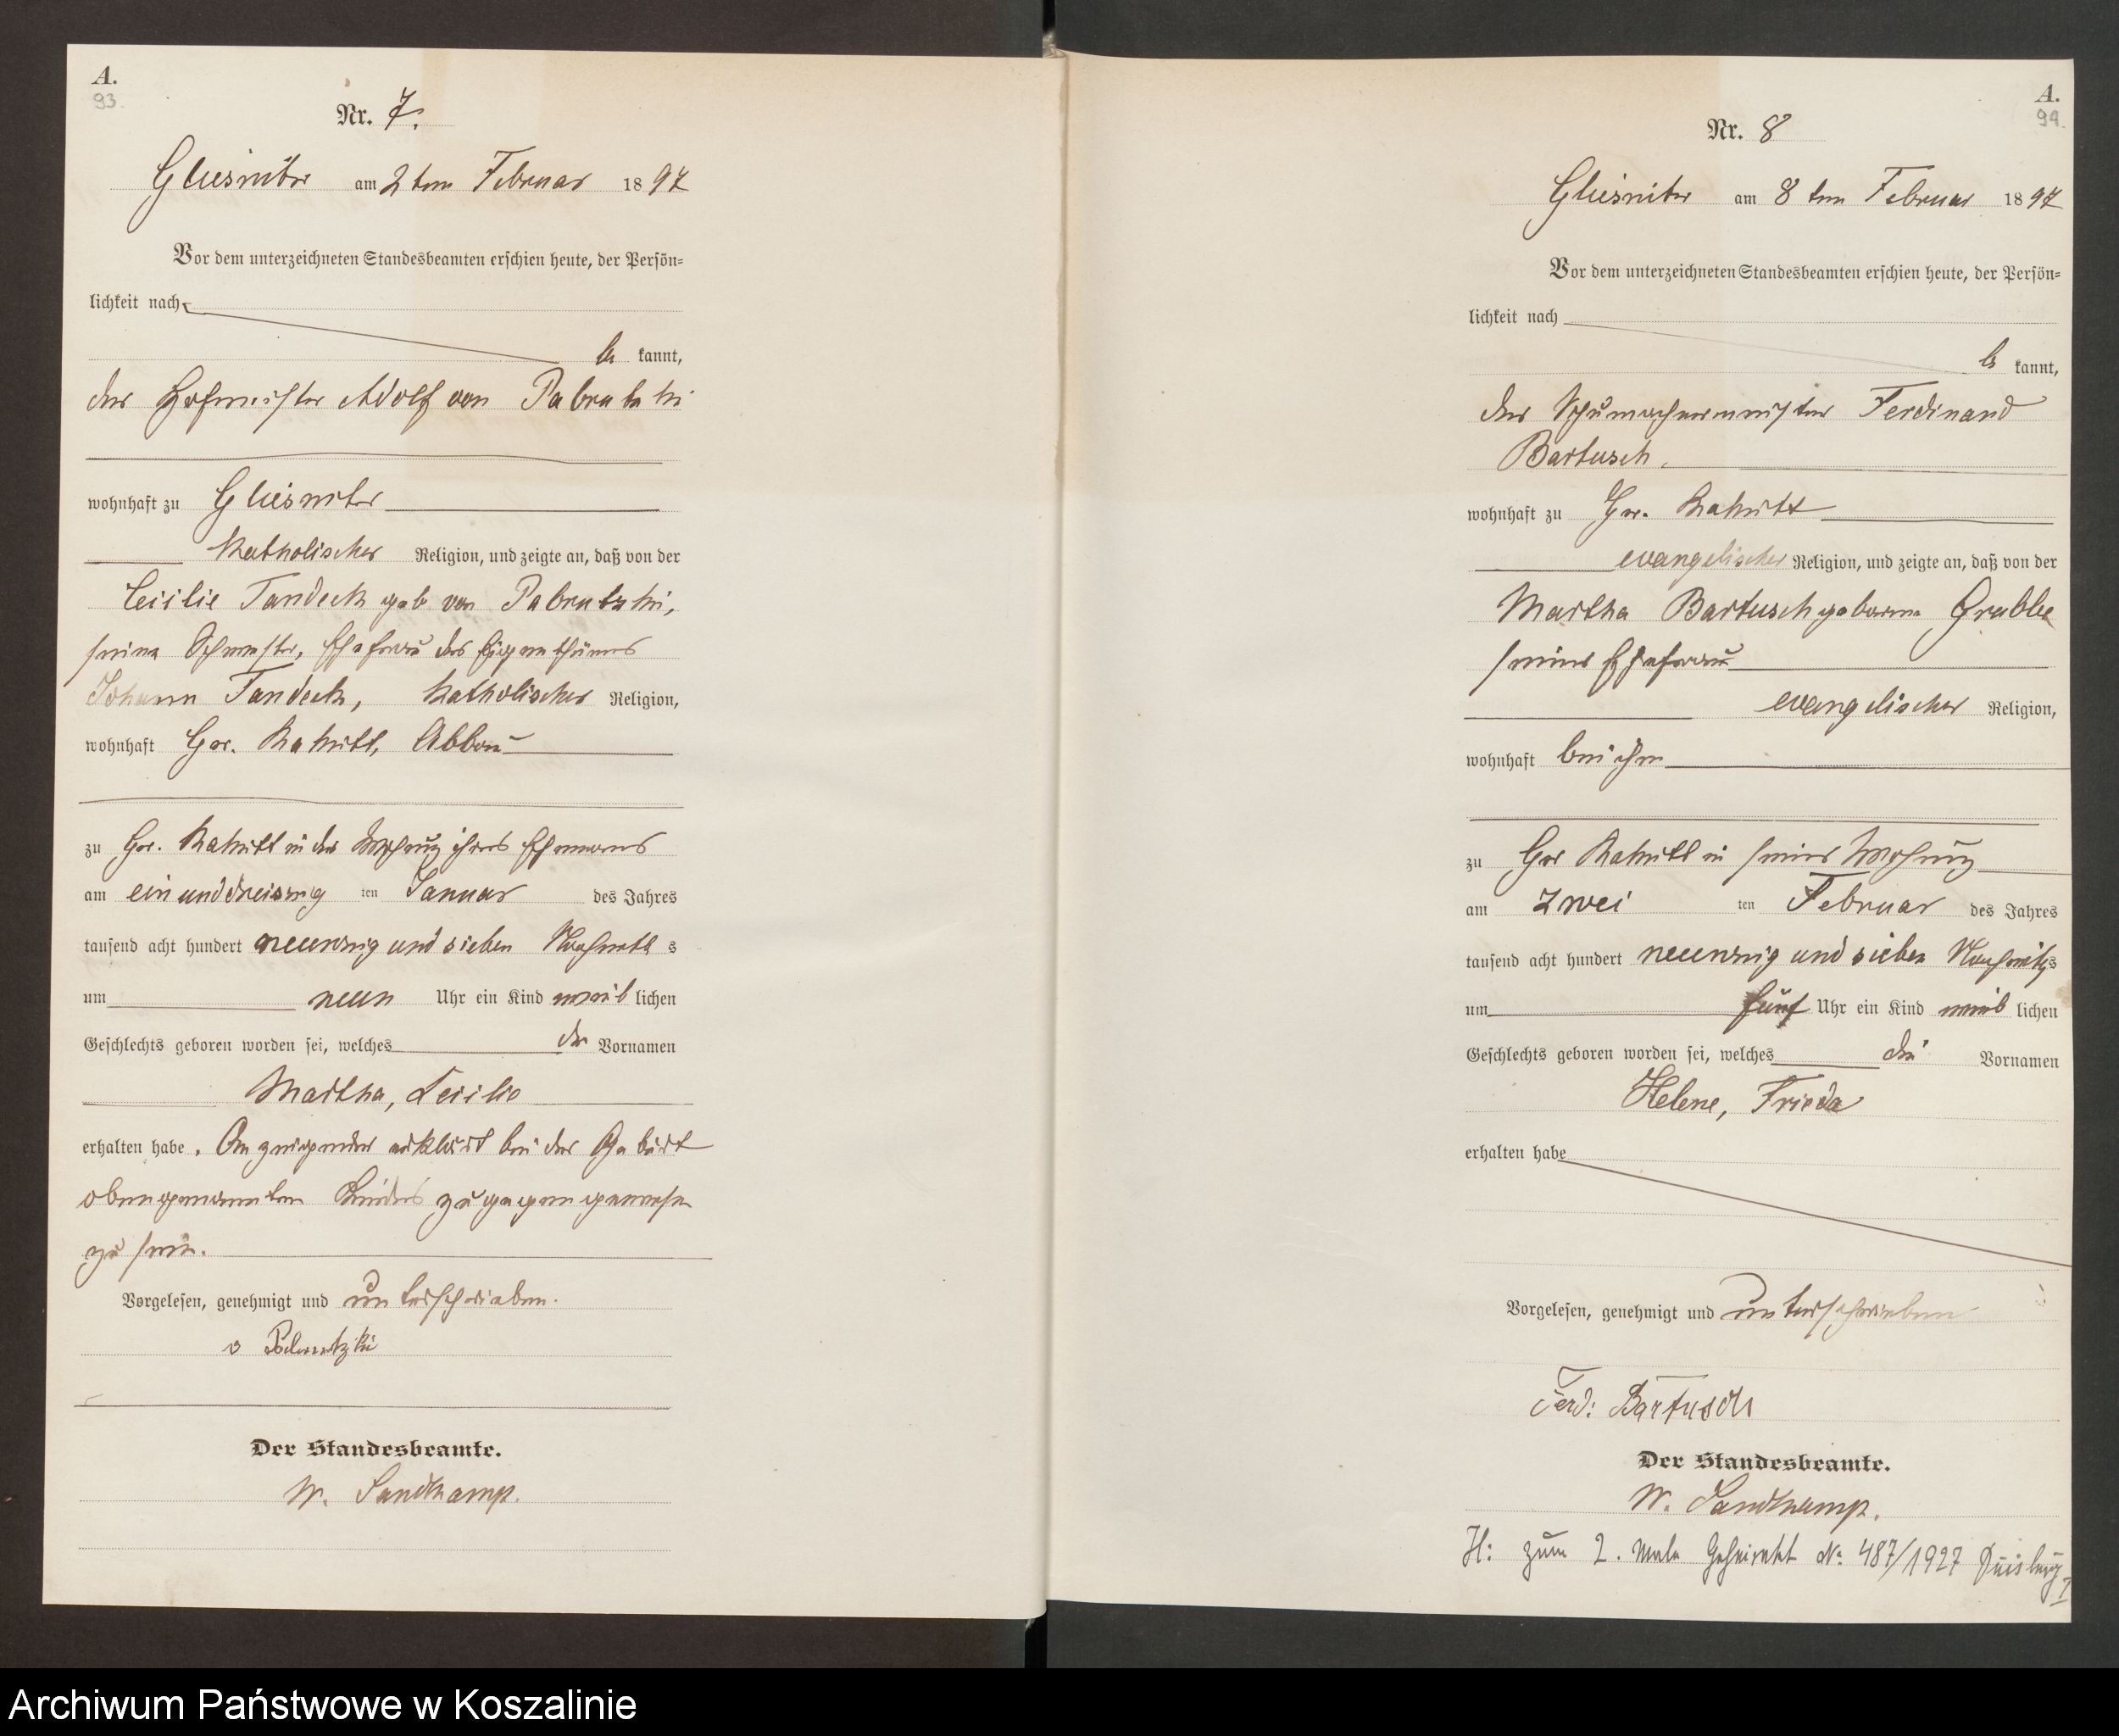 A.
93.
Nr. 7.
Gliesnitz am 2ten Februar 1897
Vor dem unterzeichneten Standesbeamten erschien heute, der Persön=
lichkeit nach
be kannt,
der Hofmeister Adolf von Pabrutzki
wohnhaft zu Gliesnitz
katholischer Religion, und zeigte an, daß von der
Cecilie Tandeck geb von Pabrutzki,
seine Schwester, Ehefrau des Eigenthümers
Johann Tandeck, katholischer Religion,
wohnhaft Gr. Rakitt, Abbau
zu Gr. Rakitt in der Wohnung ihres Ehemanns
am einunddreiszig ten Januar des Jahres
tausend acht hundert neunzig und sieben Nachmittags
um neun Uhr ein Kind weib lichen
Geschlechts geboren worden sei, welches die Vornamen
Martha, Cecilie
erhalten habe. Anzeigender erklärt bei der Geburt
obengenannten Kindes zugegen gewesen
zu sein.
Vorgelesen, genehmigt und unterschrieben.
v Pabrutzki
Der Standesbeamte.
W. Sandkamp.
A.
94.
Nr. 8
Gliesnitz am 8 ten Februar 1897
Vor dem unterzeichneten Standesbeamten erschien heute, der Persön=
lichkeit nach
be kannt,
der Schumachermeister Ferdinand
Bartusch,
wohnhaft zu Gr. Rakitt
evangelischer Religion, und zeigte an, daß von der
Martha Bartusch geborene Grabbe
seiner Ehefrau
evangelischer Religion,
wohnhaft bei ihm
zu Gr Rakitt in seiner Wohnung
am zwei ten Februar des Jahres
tausend acht hundert neunzig und sieben Nachmittags
um fünf Uhr ein Kind weib lichen
Geschlechts geboren worden sei, welches die Vornamen
Helene, Frieda
erhalten habe
Vorgelesen, genehmigt und unterschrieben
Ferd: Bartusch
Der Standesbeamte.
W. Sandkamp.
H: zum 2. Male geheiratet No 487/1927 Duisburg I
Archiwum Państwowe w Koszalinie